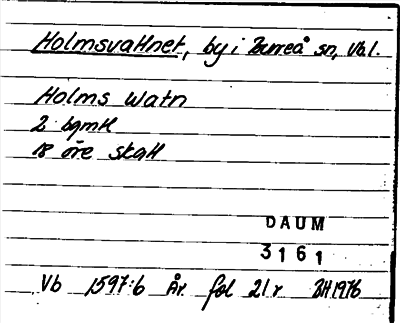 Holmsvattnet, by i Bureå sn, Vbl.
Holms Watn
2 bqmtt
18 öre skatt
DAUM
3161
Vb 1597:6 År fol 21r BH 1976